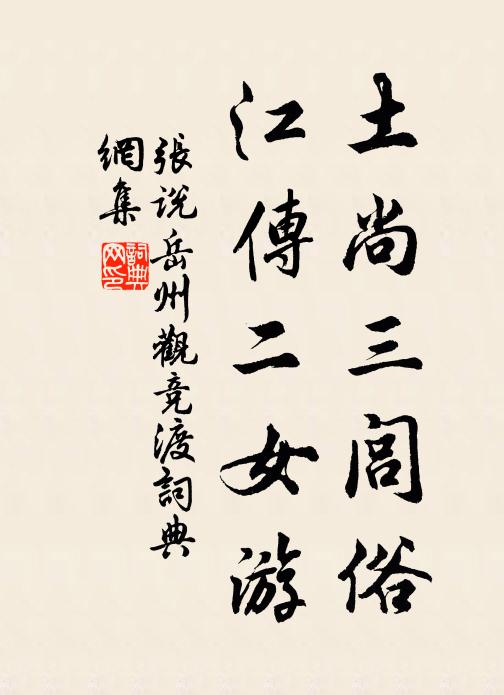 土尚三閭俗
江傳二女游
張説岳州觀竞渡詞典
網集
詞典网印